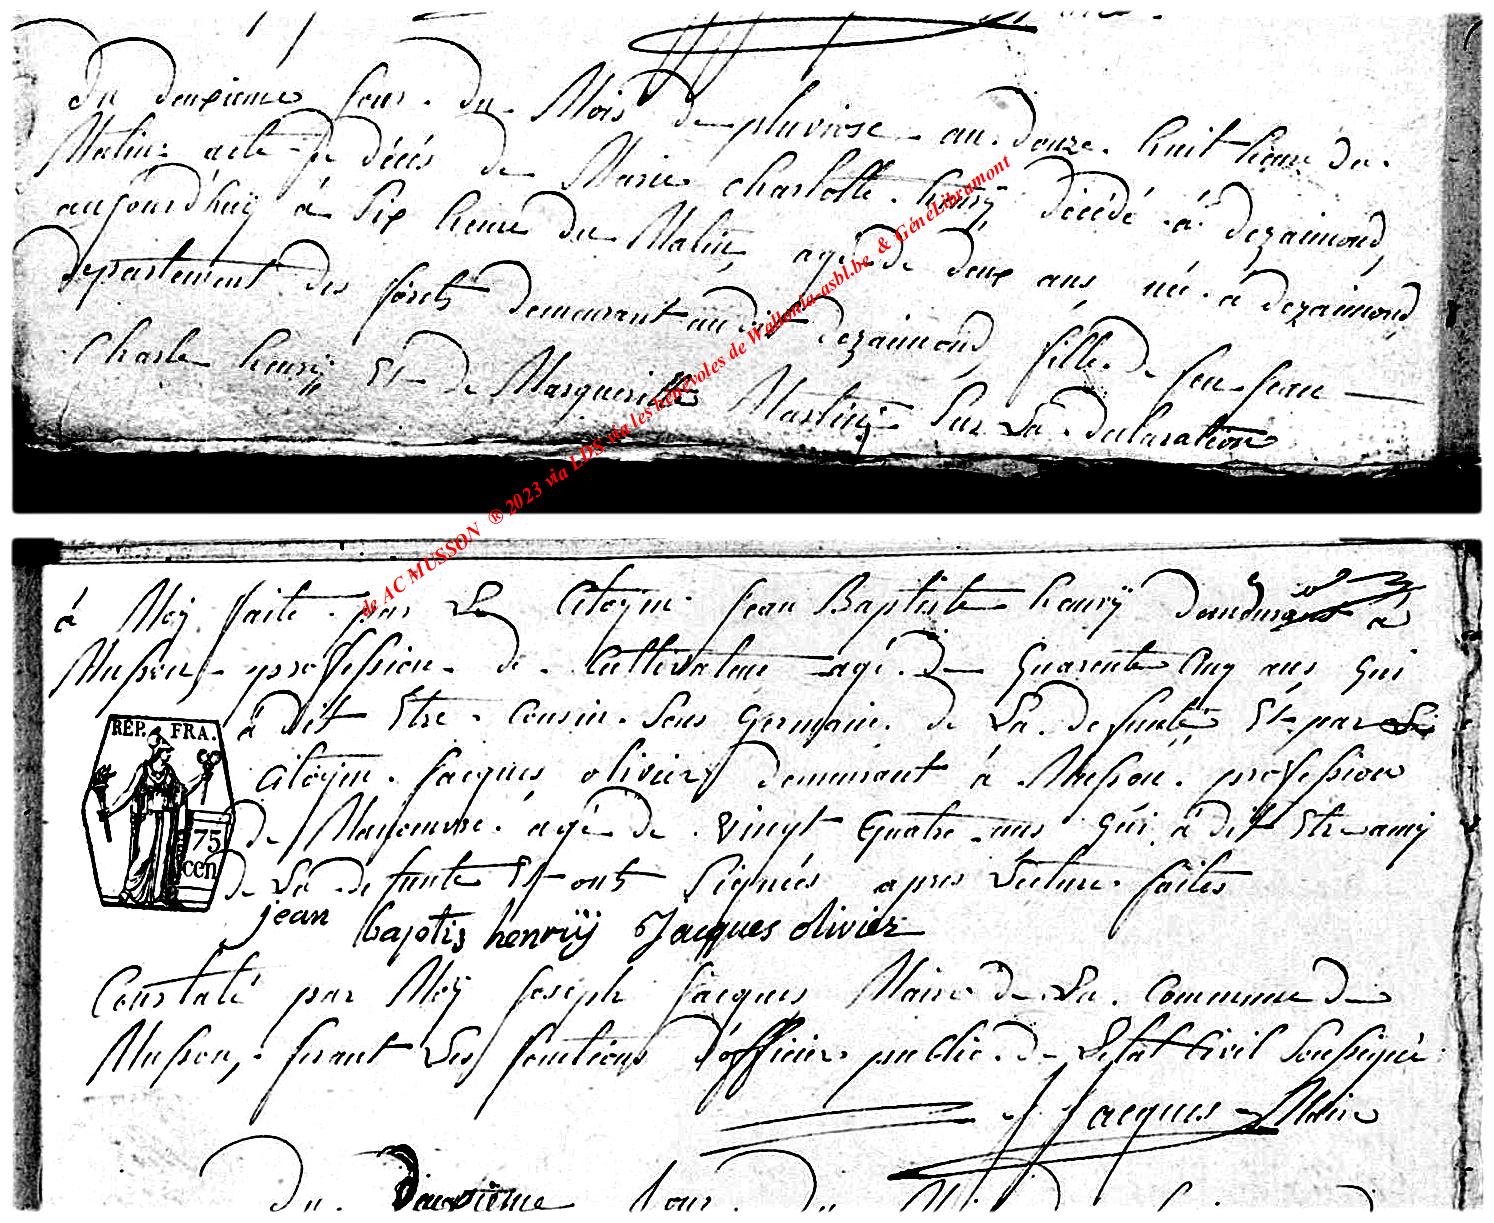 Du deuxieme jour du Mois de pluviose an douze huit heure du
Matin acte de décès de Marie charlotte henrÿ décédé à dezaimond,
aujourd'huÿ à Six heure du Matin, agé de deux ans né à dezaimond,
departement des forets demeurant audit dezaimond, fille de feu jean
Charle henrÿ Et de Margueritte Martinÿ Sur La declaration
à Moÿ faite par Le Citoÿen jean Baptiste henrÿ demeurant à
Musson, profession de Cultivateur agé de quarente Cinq ans qui
à dit Etre cousin Sous germain de La defunte Et par Le
Citoÿen jacques olivier demeurant à Musson profession
de Manoeuvre agé de vingt quatre ans qui à dit Etre amÿ
de La defunte Et ont Signés apres Lecture faites
jean baptis henrÿ Jacques olivier
REP. FRA.
75
cen
Constaté par Moÿ joseph jacques Maire de La commune de
Musson, faisant Les fonctions d'officier public de L'etat Civil Soussigné
J Jacques Maire
Du Deuxieme jour du
de AC MUSSON ® 2023 via LDS via les bénévoles de Wallonia-asbl.be & GénéLibramont